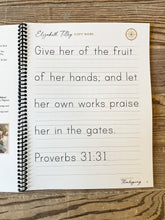 Elizabeth Tilley COPY WORK
Give her of the fruit
of her hands; and let
her own works praise
her in the gates.
Proverbs 31:31
Thanksgiving